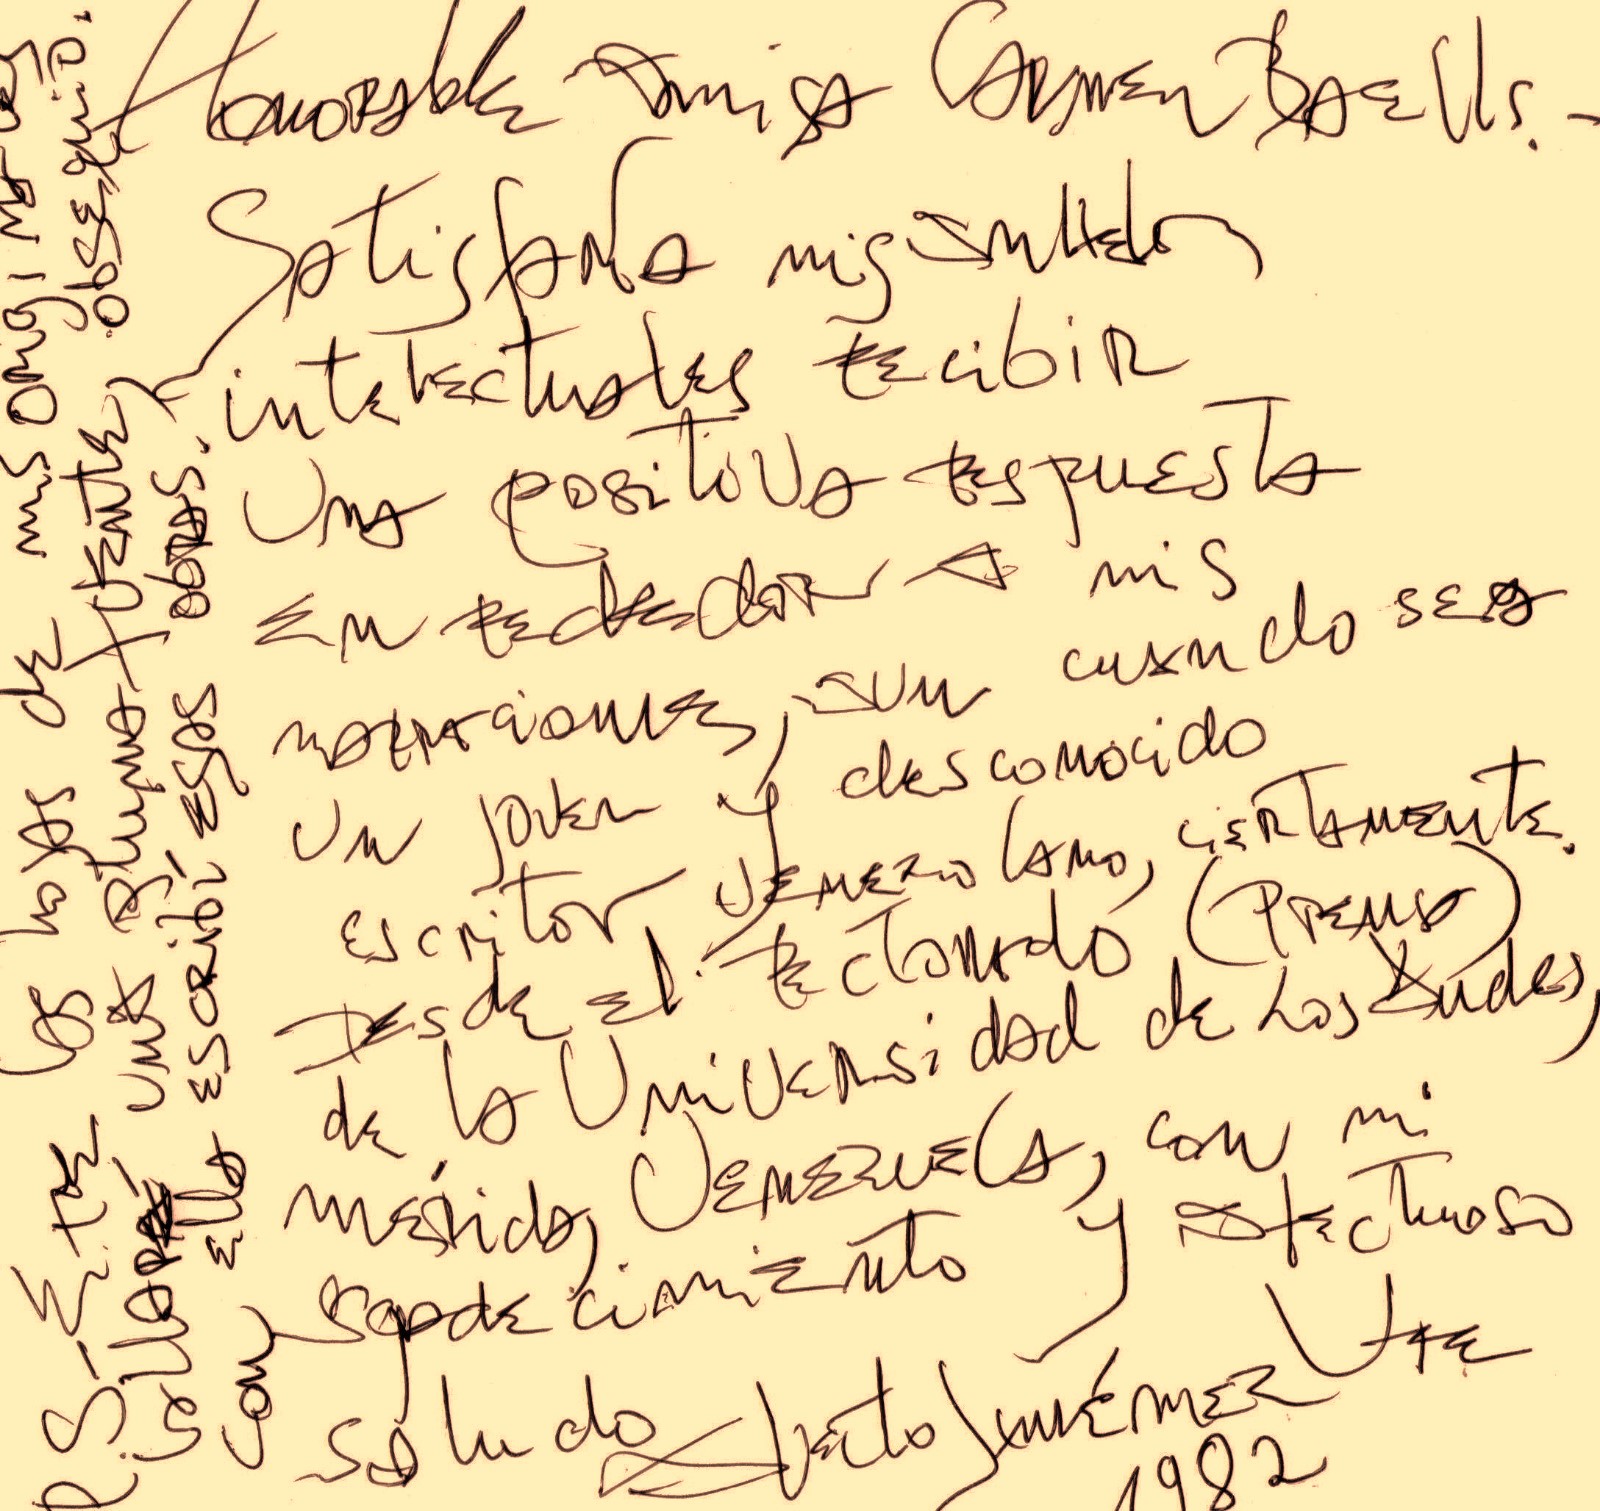 Honorable amiga Carmen Baells.-
Satisfaría mis anhelos
intelectuales recibir
una positiva respuesta
en rededor a mis
narraciones, aun cuando sea
un joven y desconocido
escritor venezolano, ciertamente.
Desde el rectorado (Prensa)
de la Universidad de Los Andes,
mérida, Venezuela, con mi
agradecimiento y afectuoso
saludo Alberto Jiménez Ure
1982
P.S- Entre las hojas de mis originales
colloqué una pluma fuente,
con ello escribí esas obras.
obsequio.